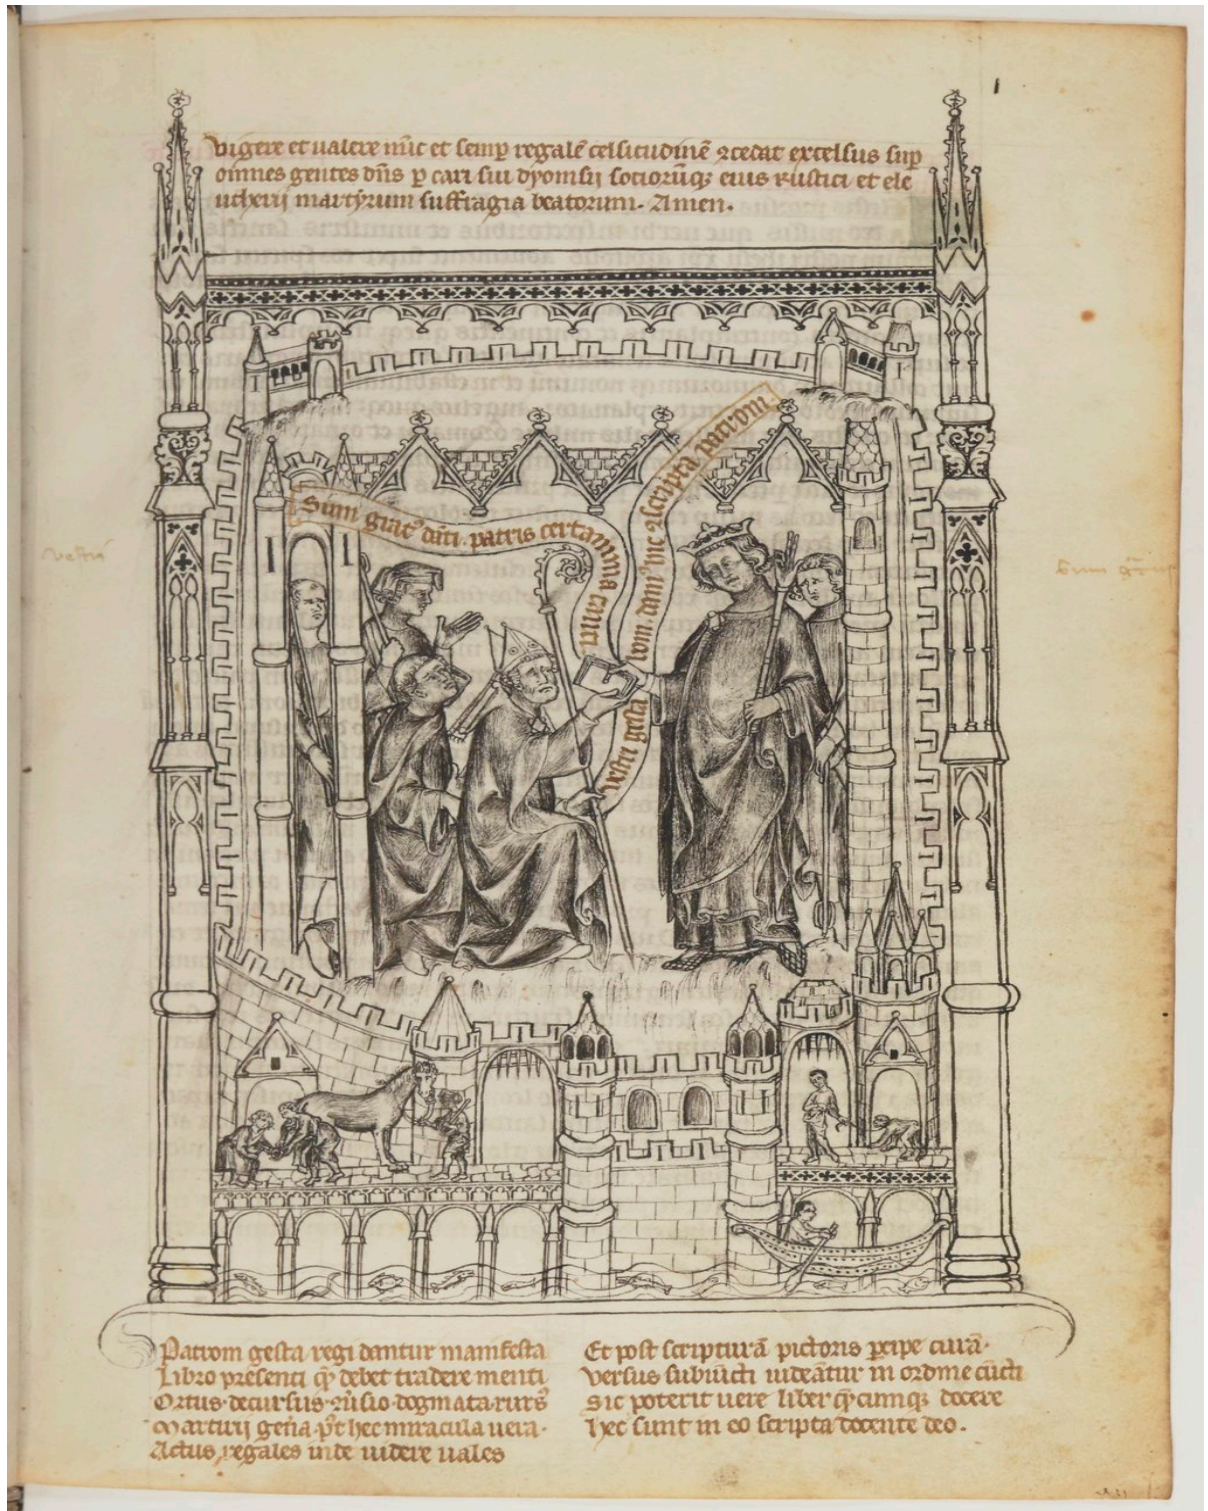 vigere et ualere nūc et semp̱ regalē celsitudinē ꝯcedat excelsus sup̱
omnes gentes dn̄s p̱ cari sui dyonisij sociorūq; eius rustici et ele
utherij martyrum suffragia beatorum. Amen.
Sum grat᷒ dāti. patris certamina tanti
vestri gesta bom. dam᷒ hic ꝯscripta patrom.
vestri
Patrom gesta regi dantur manifesta
Libro presenti q̄ debet tradere menti
Ortus. decursus. dogmata. rurs᷒
Martirij gen̄a. p᷒t hec miracula uera.
Actus, regales inde uidere uales
Et post scripturā pictoris p̱cipe curā.
versus subiuncti uideātur in ordine cūcti
Sic poterit uere liber q̄cunq; docere
Hec sunt in eo scripta docente deo.